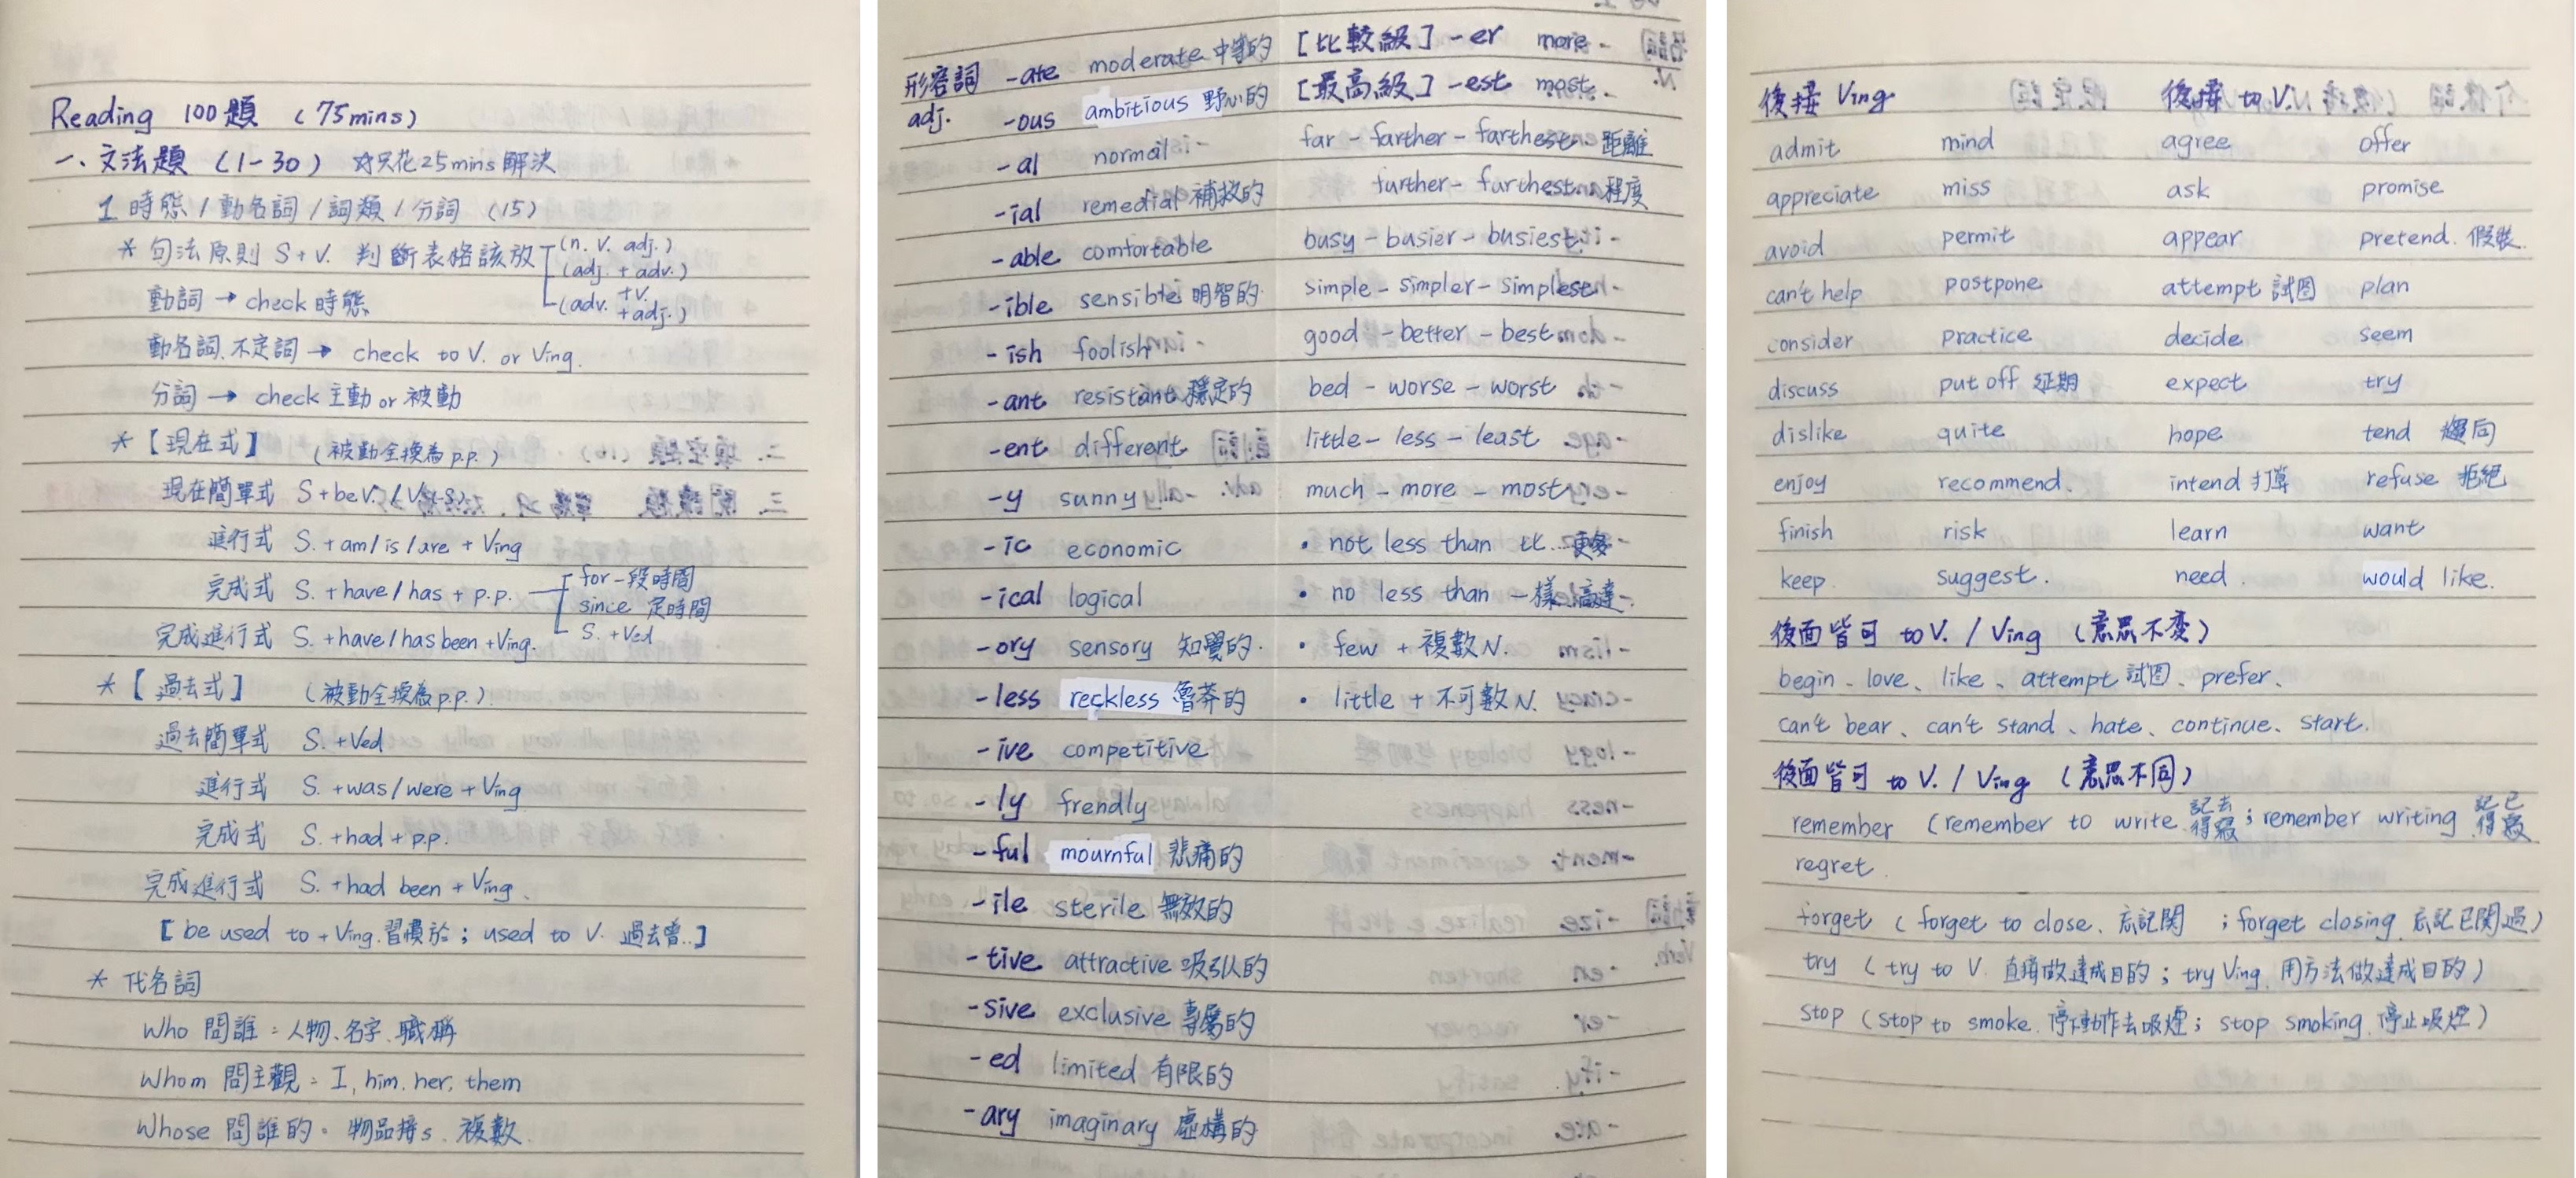 Reading 100題 (75mins)
一、文法題 (1-30) ☆只花25mins解決
1 時態/動名詞/詞類/分詞 (15)
* 句法原則 S+V. 判斷表格該放 (n. V. adj.)
(adj. + adv.)
動詞 → check 時態 (adv. +V. +adj.)
動名詞.不定詞 → check to V. or Ving.
分詞 → check 主動 or 被動
* 【現在式】 (被動全換為p.p.)
現在簡單式 S+beV. / V(-s)
進行式 S.+am/is/are + Ving
完成式 S.+have/has + p.p. for 一段時間
since 定時間
完成進行式 S.+have/has been +Ving. S.+Ved
* 【過去式】 (被動全換為p.p.)
過去簡單式 S.+Ved
進行式 S.+was/were + Ving
完成式 S.+had + p.p.
完成進行式 S.+had been + Ving.
[be used to + Ving.習慣於; used to V. 過去曾..]
* 代名詞
Who 問誰: 人物、名字、職稱
Whom 問主觀: I, him, her, them
Whose 問誰的。物品接s、複數.
形容詞 adj. -ate moderate 中等的
-ous ambitious 野心的
-al normal
-ial remedial 補救的
-able comfortable
-ible sensible 明智的
-ish foolish
-ant resistant 穩定的
-ent different
-y sunny
-ic economic
-ical logical
-ory sensory 知覺的.
-less reckless 魯莽的
-ive competitive
-ly frendly
-ful mournful 悲痛的
-ile sterile 無效的
-tive attractive 吸引人的
-sive exclusive 專屬的
-ed limited 有限的
-ary imaginary 虛構的
[比較級] -er more-
[最高級] -est most.
far - farther - farthest 距離
further - furthest 程度
busy - busier - busiest
simple - simpler - simplest
good - better - best
bed - worse - worst
little - less - least
much - more - most
• not less than 比...更多
• no less than 一樣高達.
• few + 複數N.
• little + 不可數N.
後接 Ving
admit mind
appreciate miss
avoid permit
can't help postpone
consider practice
discuss put off 延期
dislike quite
enjoy recommend.
finish risk
keep. suggest.
後接 to V.
agree offer
ask promise
appear pretend. 假裝.
attempt 試圖 plan
decide seem
expect try
hope tend 趨向
intend 打算 refuse 拒絕
learn want
need. would like.
後面皆可 to V. / Ving (意思不變)
begin、love、like、attempt 試圖、prefer、
can't bear、can't stand、hate、continue、start.
後面皆可 to V. / Ving (意思不同)
remember (remember to write 記得去寫; remember writing 記得已寫
regret.
forget (forget to close、忘記関 ; forget closing、忘記已関過)
try (try to V. 直接做達成目的; try Ving 用方法做達成目的)
stop (stop to smoke 停下動作去吸煙; stop smoking 停止吸煙)